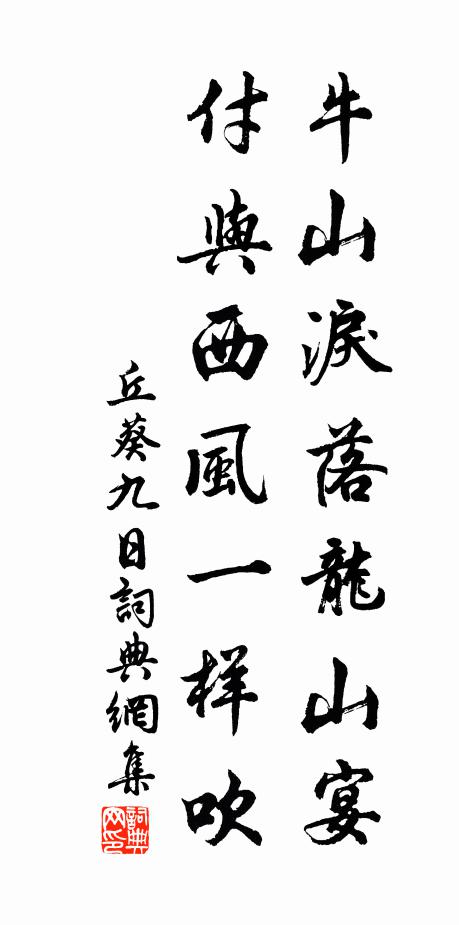 牛山淚落龍山宴
付與西風一样吹
丘葵九日詞典網集
詞典网印